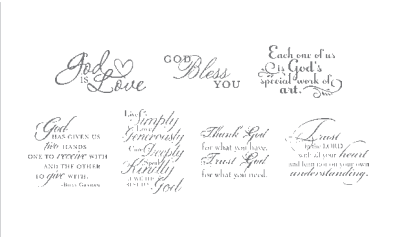 God
is Love
GOD
Bless
YOU
Each one of us
is God's
special work of
art.
God
HAS GIVEN US
two HANDS
ONE TO receive WITH
AND THE OTHER
TO give WITH.
-BILLY GRAHAM
Live Simply
Love Generously
Care Deeply
Speak Kindly
God
Thank God
for what you have.
Trust God
for what you need.
Trust
in the LORD
with all your heart
and lean not on your own
understanding.